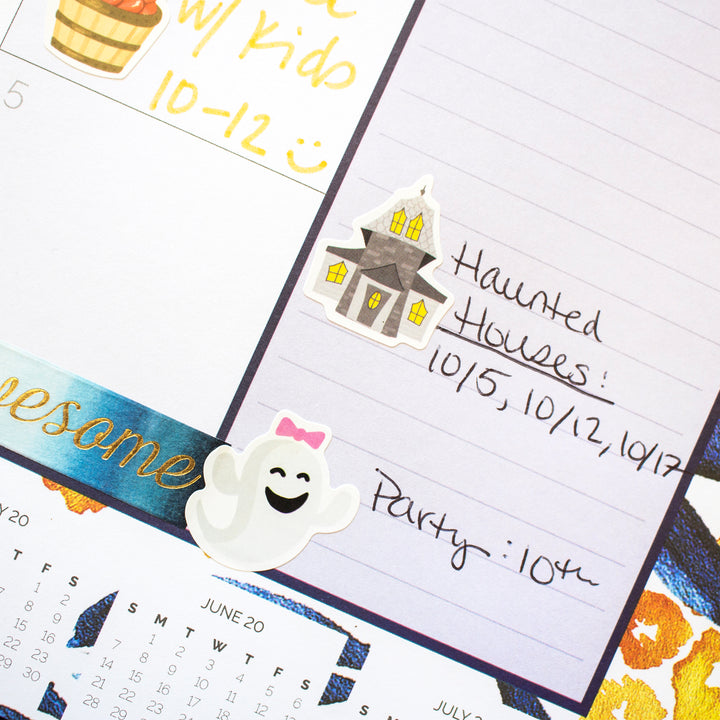 w/ Kids
10-12 :)
5
Haunted
Houses:
10/5, 10/12, 10/17
Party: 10th
esome
20
T F S
1 2
8 9
15 16
22 23
29 30
JUNE 20
S M T W T F S
1 2 3 4 5 6
7 8 9 10 11 12
14 15 16 17 18
21 22 23 24
28 29
JULY
S